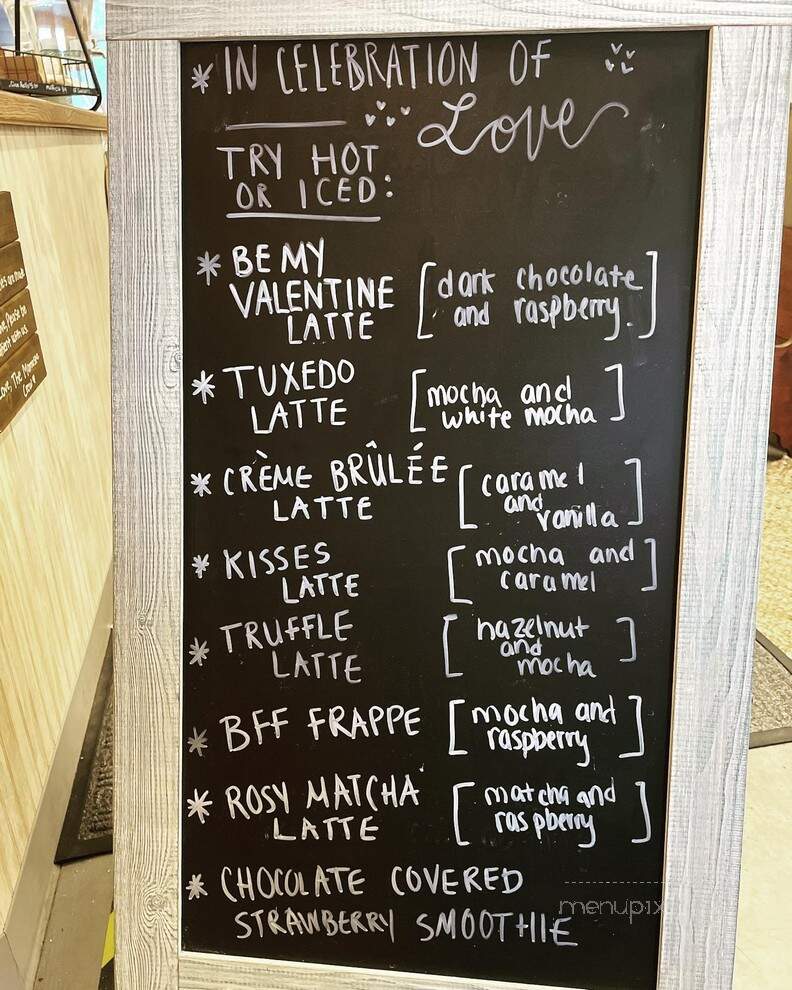 * IN CELEBRATION OF
Love
TRY HOT
OR ICED:
* BE MY
VALENTINE
LATTE
[dark chocolate
and raspberry.]
* TUXEDO
LATTE
[mocha and
white mocha]
* CRÈME BRÛLÉE
LATTE
[caramel
and
vanilla]
* KISSES
LATTE
[mocha and
caramel]
* TRUFFLE
LATTE
[hazelnut
and
mocha]
* BFF FRAPPE
[mocha and
raspberry]
* ROSY MATCHA
LATTE
[matcha and
raspberry]
* CHOCOLATE COVERED
STRAWBERRY SMOOTHIE
menupix